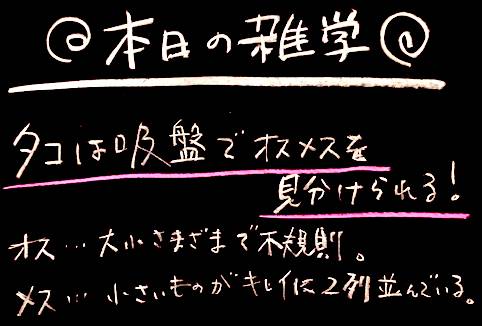 @本日の雑学@
タコは吸盤でオスメスを
見分けられる!
オス…大小さまざまで不規則。
メス…小さいものがキレイに2列並んでいる。